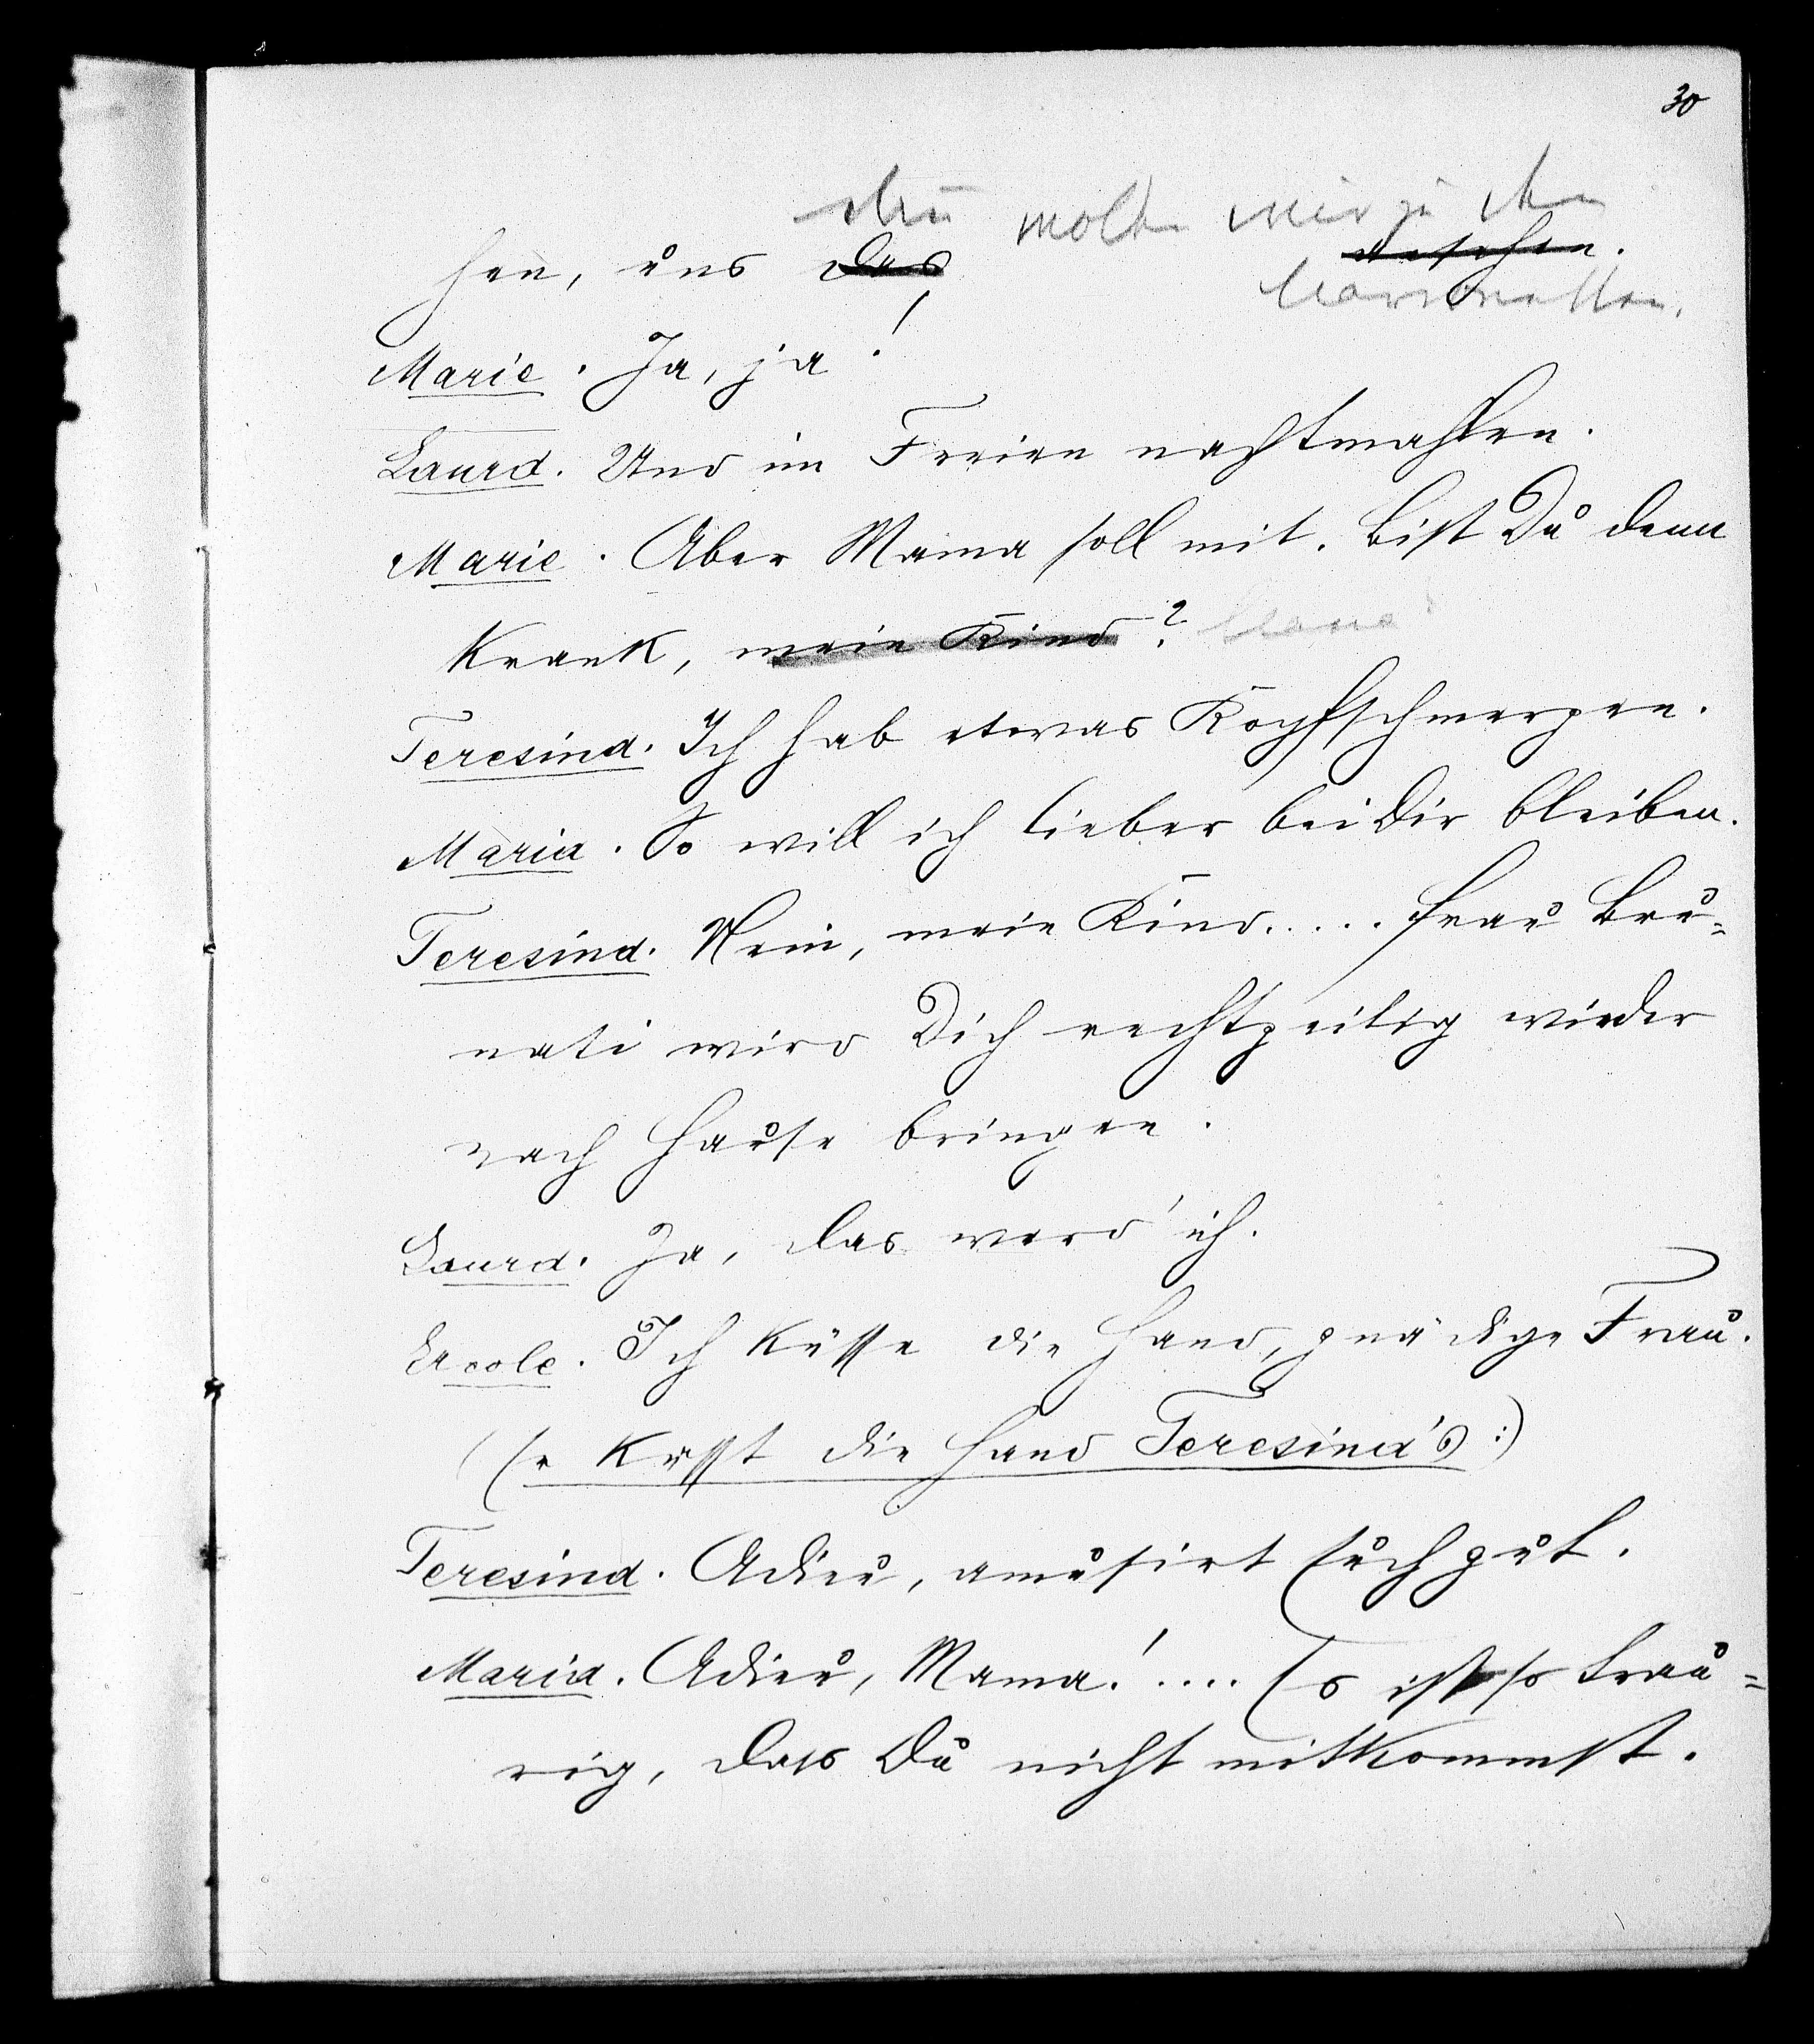 30
dann wollen wir zu den
hen, uns das ansehen.
Marionetten.
Marie. Ja, ja!
Laura. Und im Freien nachtmahlen.
Marie. Aber Mama soll mit. Bist Du denn
krank, mein Kind? Mama
Teresina. Ich hab etwas Kopfschmerzen.
Maria. So will ich lieber bei Dir bleiben.
Teresina. Nein, mein Kind..... Frau Bru-
nati wird Dich rechtzeitig wieder
nach Hause bringen.
Laura. Ja, das werd' ich.
Ercole. Ich küsse die Hand, gnädige Frau.
(Er küsst die Hand Teresina's:)
Teresina. Adieu, amüsirt Euch gut.
Maria. Adieu, Mama!.... Es ist so trau=
rig, dass Du nicht mitkommst.